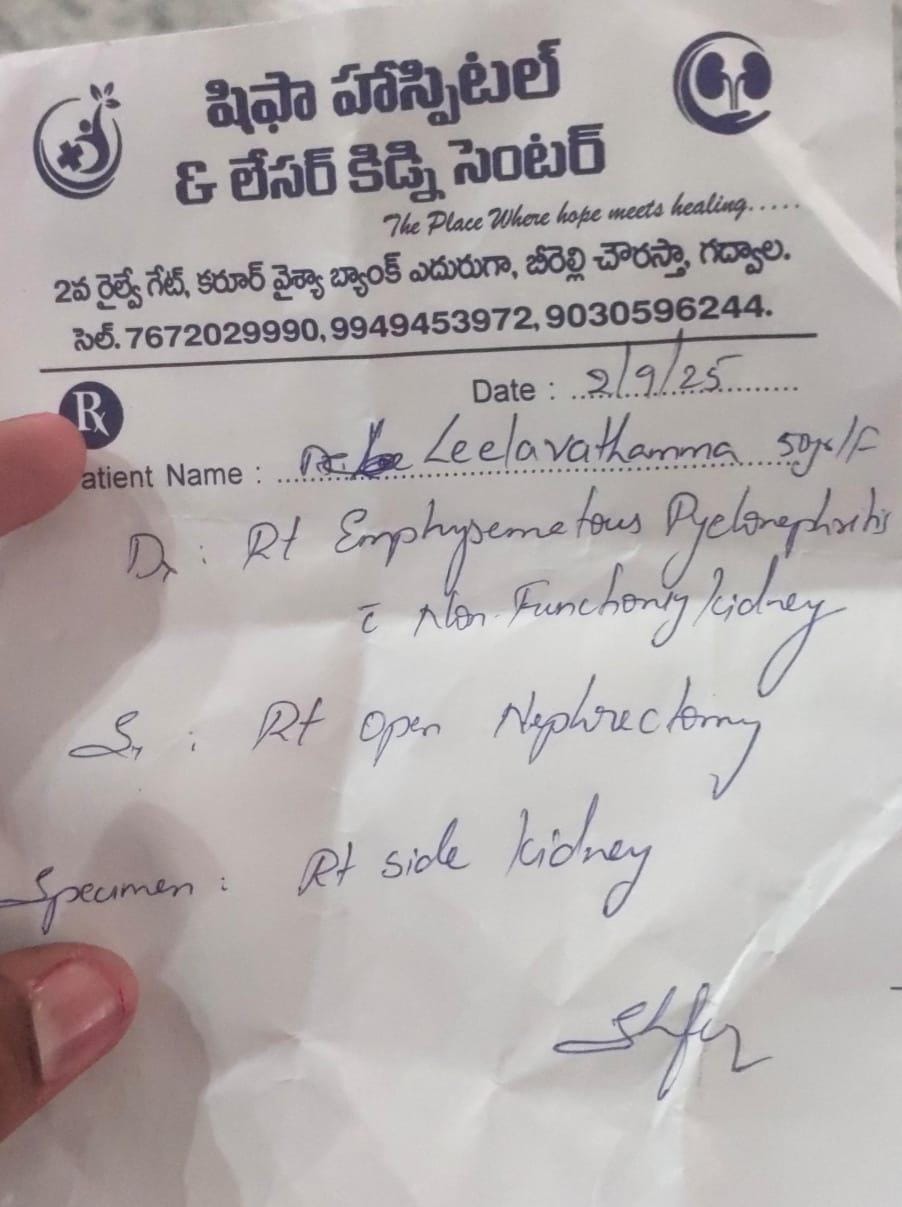 షిఫా హాస్పిటల్
& లేసర్ కిడ్ని సెంటర్
The Place Where hope meets healing.....
2వ రైల్వే గేట్, కరూర్ వైశ్యా బ్యాంక్ ఎదురుగా, బీరెల్లి చౌరస్తా, గద్వాల.
సెల్. 7672029990, 9949453972, 9030596244.
Rx
Date : 2/9/25
atient Name : Leelavathamma 50yr/F
Dx : Rt Emphysematous Pyelonephritis
c̄ Non-Functioning kidney
Sx : Rt open Nephrectomy
Specimen : Rt side kidney